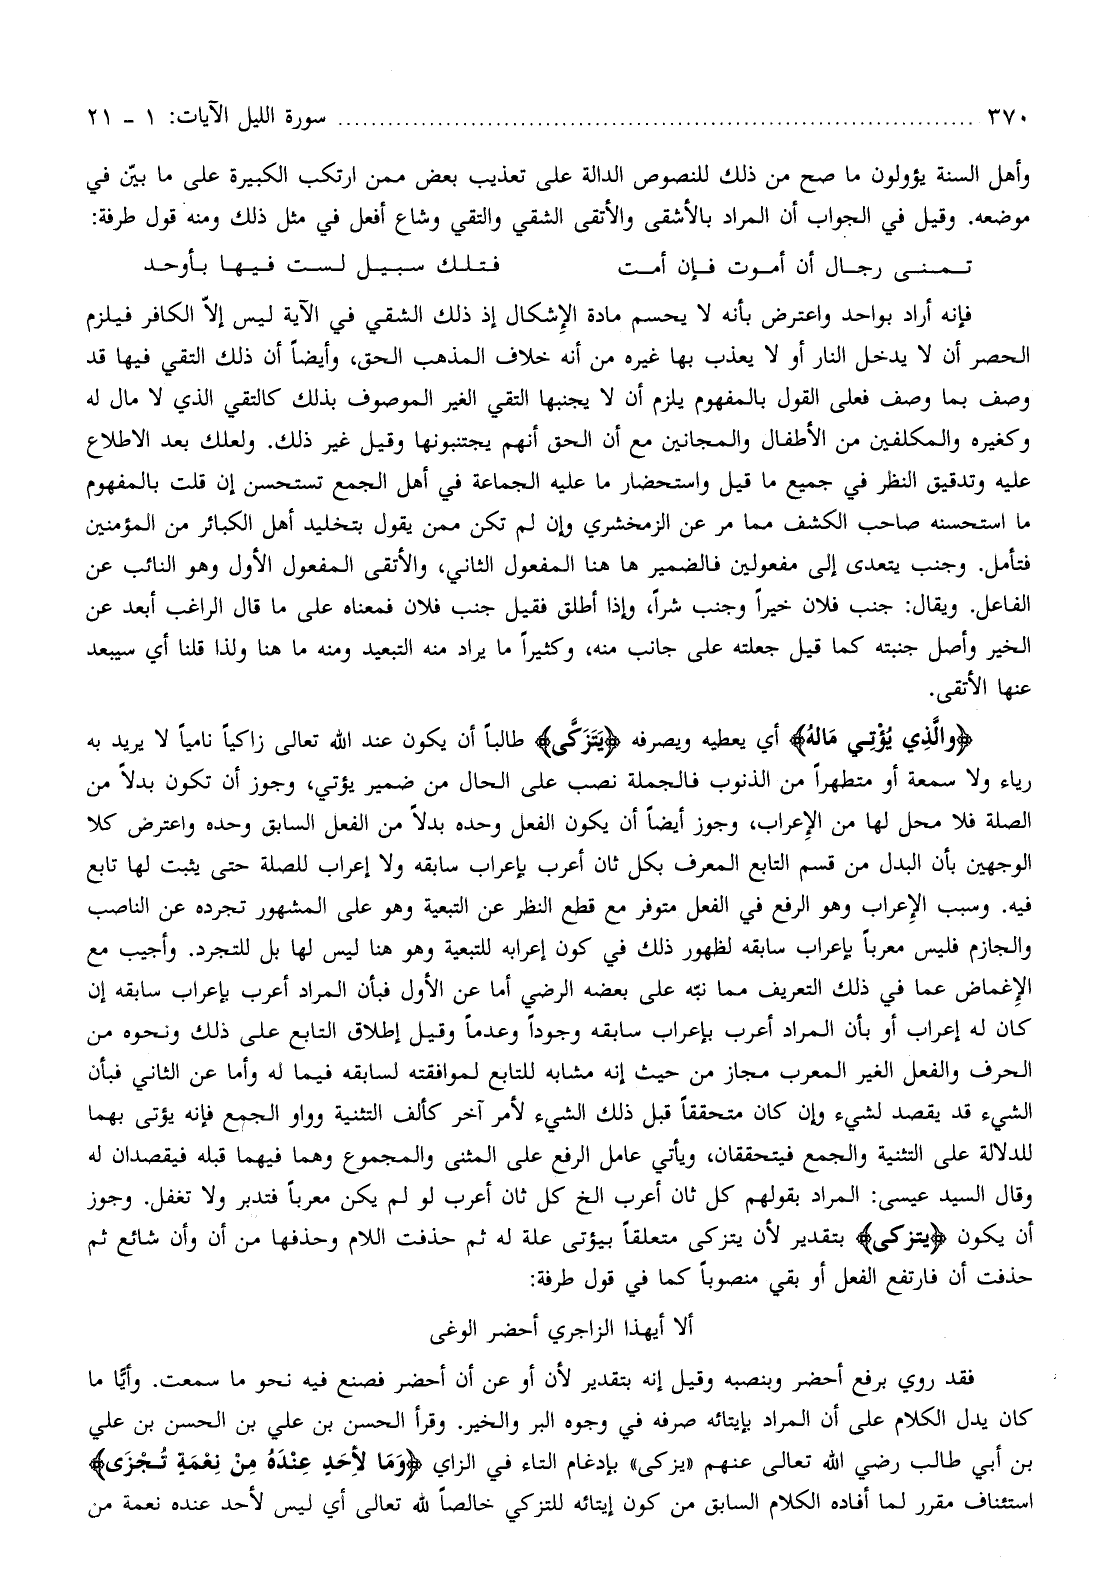 ٣٧٠ ........................................................................ سورة الليل الآيات: ١ - ٢١
وأهل السنة يؤولون ما صح من ذلك للنصوص الدالة على تعذيب بعض ممن ارتكب الكبيرة على ما بيّن في
موضعه. وقيل في الجواب أن المراد بالأشقى والأتقى الشقي والتقي وشاع أفعل في مثل ذلك ومنه قول طرفة:
تمنى رجال أن أموت فإن أمت فتلك سبيل لست فيها بأوحد
فإنه أراد بواحد واعترض بأنه لا يحسم مادة الإشكال إذ ذلك الشقي في الآية ليس إلاّ الكافر فيلزم
الحصر أن لا يدخل النار أو لا يعذب بها غيره من أنه خلاف المذهب الحق، وأيضاً أن ذلك التقي فيها قد
وصف بما وصف فعلى القول بالمفهوم يلزم أن لا يجنبها التقي الغير الموصوف بذلك كالتقي الذي لا مال له
وكغيره والمكلفين من الأطفال والمجانين مع أن الحق أنهم يجتنبونها وقيل غير ذلك. ولعلك بعد الاطلاع
عليه وتدقيق النظر في جميع ما قيل واستحضار ما عليه الجماعة في أهل الجمع تستحسن إن قلت بالمفهوم
ما استحسنه صاحب الكشف مما مر عن الزمخشري وإن لم تكن ممن يقول بتخليد أهل الكبائر من المؤمنين
فتأمل. وجنب يتعدى إلى مفعولين فالضمير ها هنا المفعول الثاني، والأتقى المفعول الأول وهو النائب عن
الفاعل. ويقال: جنب فلان خيراً وجنب شراً، وإذا أطلق فقيل جنب فلان فمعناه على ما قال الراغب أبعد عن
الخير وأصل جنبته كما قيل جعلته على جانب منه، وكثيراً ما يراد منه التبعيد ومنه ما هنا ولذا قلنا أي سيبعد
عنها الأتقى.
﴿والَّذِي يُؤْتِي مَالهُ﴾ أي يعطيه ويصرفه ﴿يَتَزَكَّى﴾ طالباً أن يكون عند الله تعالى زاكياً نامياً لا يريد به
رياء ولا سمعة أو متطهراً من الذنوب فالجملة نصب على الحال من ضمير يؤتي، وجوز أن تكون بدلاً من
الصلة فلا محل لها من الإعراب، وجوز أيضاً أن يكون الفعل وحده بدلاً من الفعل السابق وحده واعترض كلا
الوجهين بأن البدل من قسم التابع المعرف بكل ثان أعرب بإعراب سابقه ولا إعراب للصلة حتى يثبت لها تابع
فيه. وسبب الإعراب وهو الرفع في الفعل متوفر مع قطع النظر عن التبعية وهو على المشهور تجرده عن الناصب
والجازم فليس معرباً بإعراب سابقه لظهور ذلك في كون إعرابه للتبعية وهو هنا ليس لها بل للتجرد. وأجيب مع
الإغماض عما في ذلك التعريف مما نبّه على بعضه الرضي أما عن الأول فبأن المراد أعرب بإعراب سابقه إن
كان له إعراب أو بأن المراد أعرب بإعراب سابقه وجوداً وعدماً وقيل إطلاق التابع على ذلك ونحوه من
الحرف والفعل الغير المعرب مجاز من حيث إنه مشابه للتابع لموافقته لسابقه فيما له وأما عن الثاني فبأن
الشيء قد يقصد لشيء وإن كان متحققاً قبل ذلك الشيء لأمر آخر كألف التثنية وواو الجمع فإنه يؤتى بهما
للدلالة على التثنية والجمع فيتحققان، ويأتي عامل الرفع على المثنى والمجموع وهما فيهما قبله فيقصدان له
وقال السيد عيسى: المراد بقولهم كل ثان أعرب الخ كل ثان أعرب لو لم يكن معرباً فتدبر ولا تغفل. وجوز
أن يكون ﴿يتزكى﴾ بتقدير لأن يتزكى متعلقاً بيؤتى علة له ثم حذفت اللام وحذفها من أن وأن شائع ثم
حذفت أن فارتفع الفعل أو بقي منصوباً كما في قول طرفة:
ألا أيهذا الزاجري أحضر الوغى
فقد روي برفع أحضر وبنصبه وقيل إنه بتقدير لأن أو عن أن أحضر فصنع فيه نحو ما سمعت. وأيًّا ما
كان يدل الكلام على أن المراد بإيتائه صرفه في وجوه البر والخير. وقرأ الحسن بن علي بن الحسن بن علي
بن أبي طالب رضي الله تعالى عنهم «يزكى» بإدغام التاء في الزاي ﴿وَمَا لأحَدٍ عِنْدَهُ مِنْ نِعْمَةٍ تُجْزَى﴾
استئناف مقرر لما أفاده الكلام السابق من كون إيتائه للتزكي خالصاً لله تعالى أي ليس لأحد عنده نعمة من